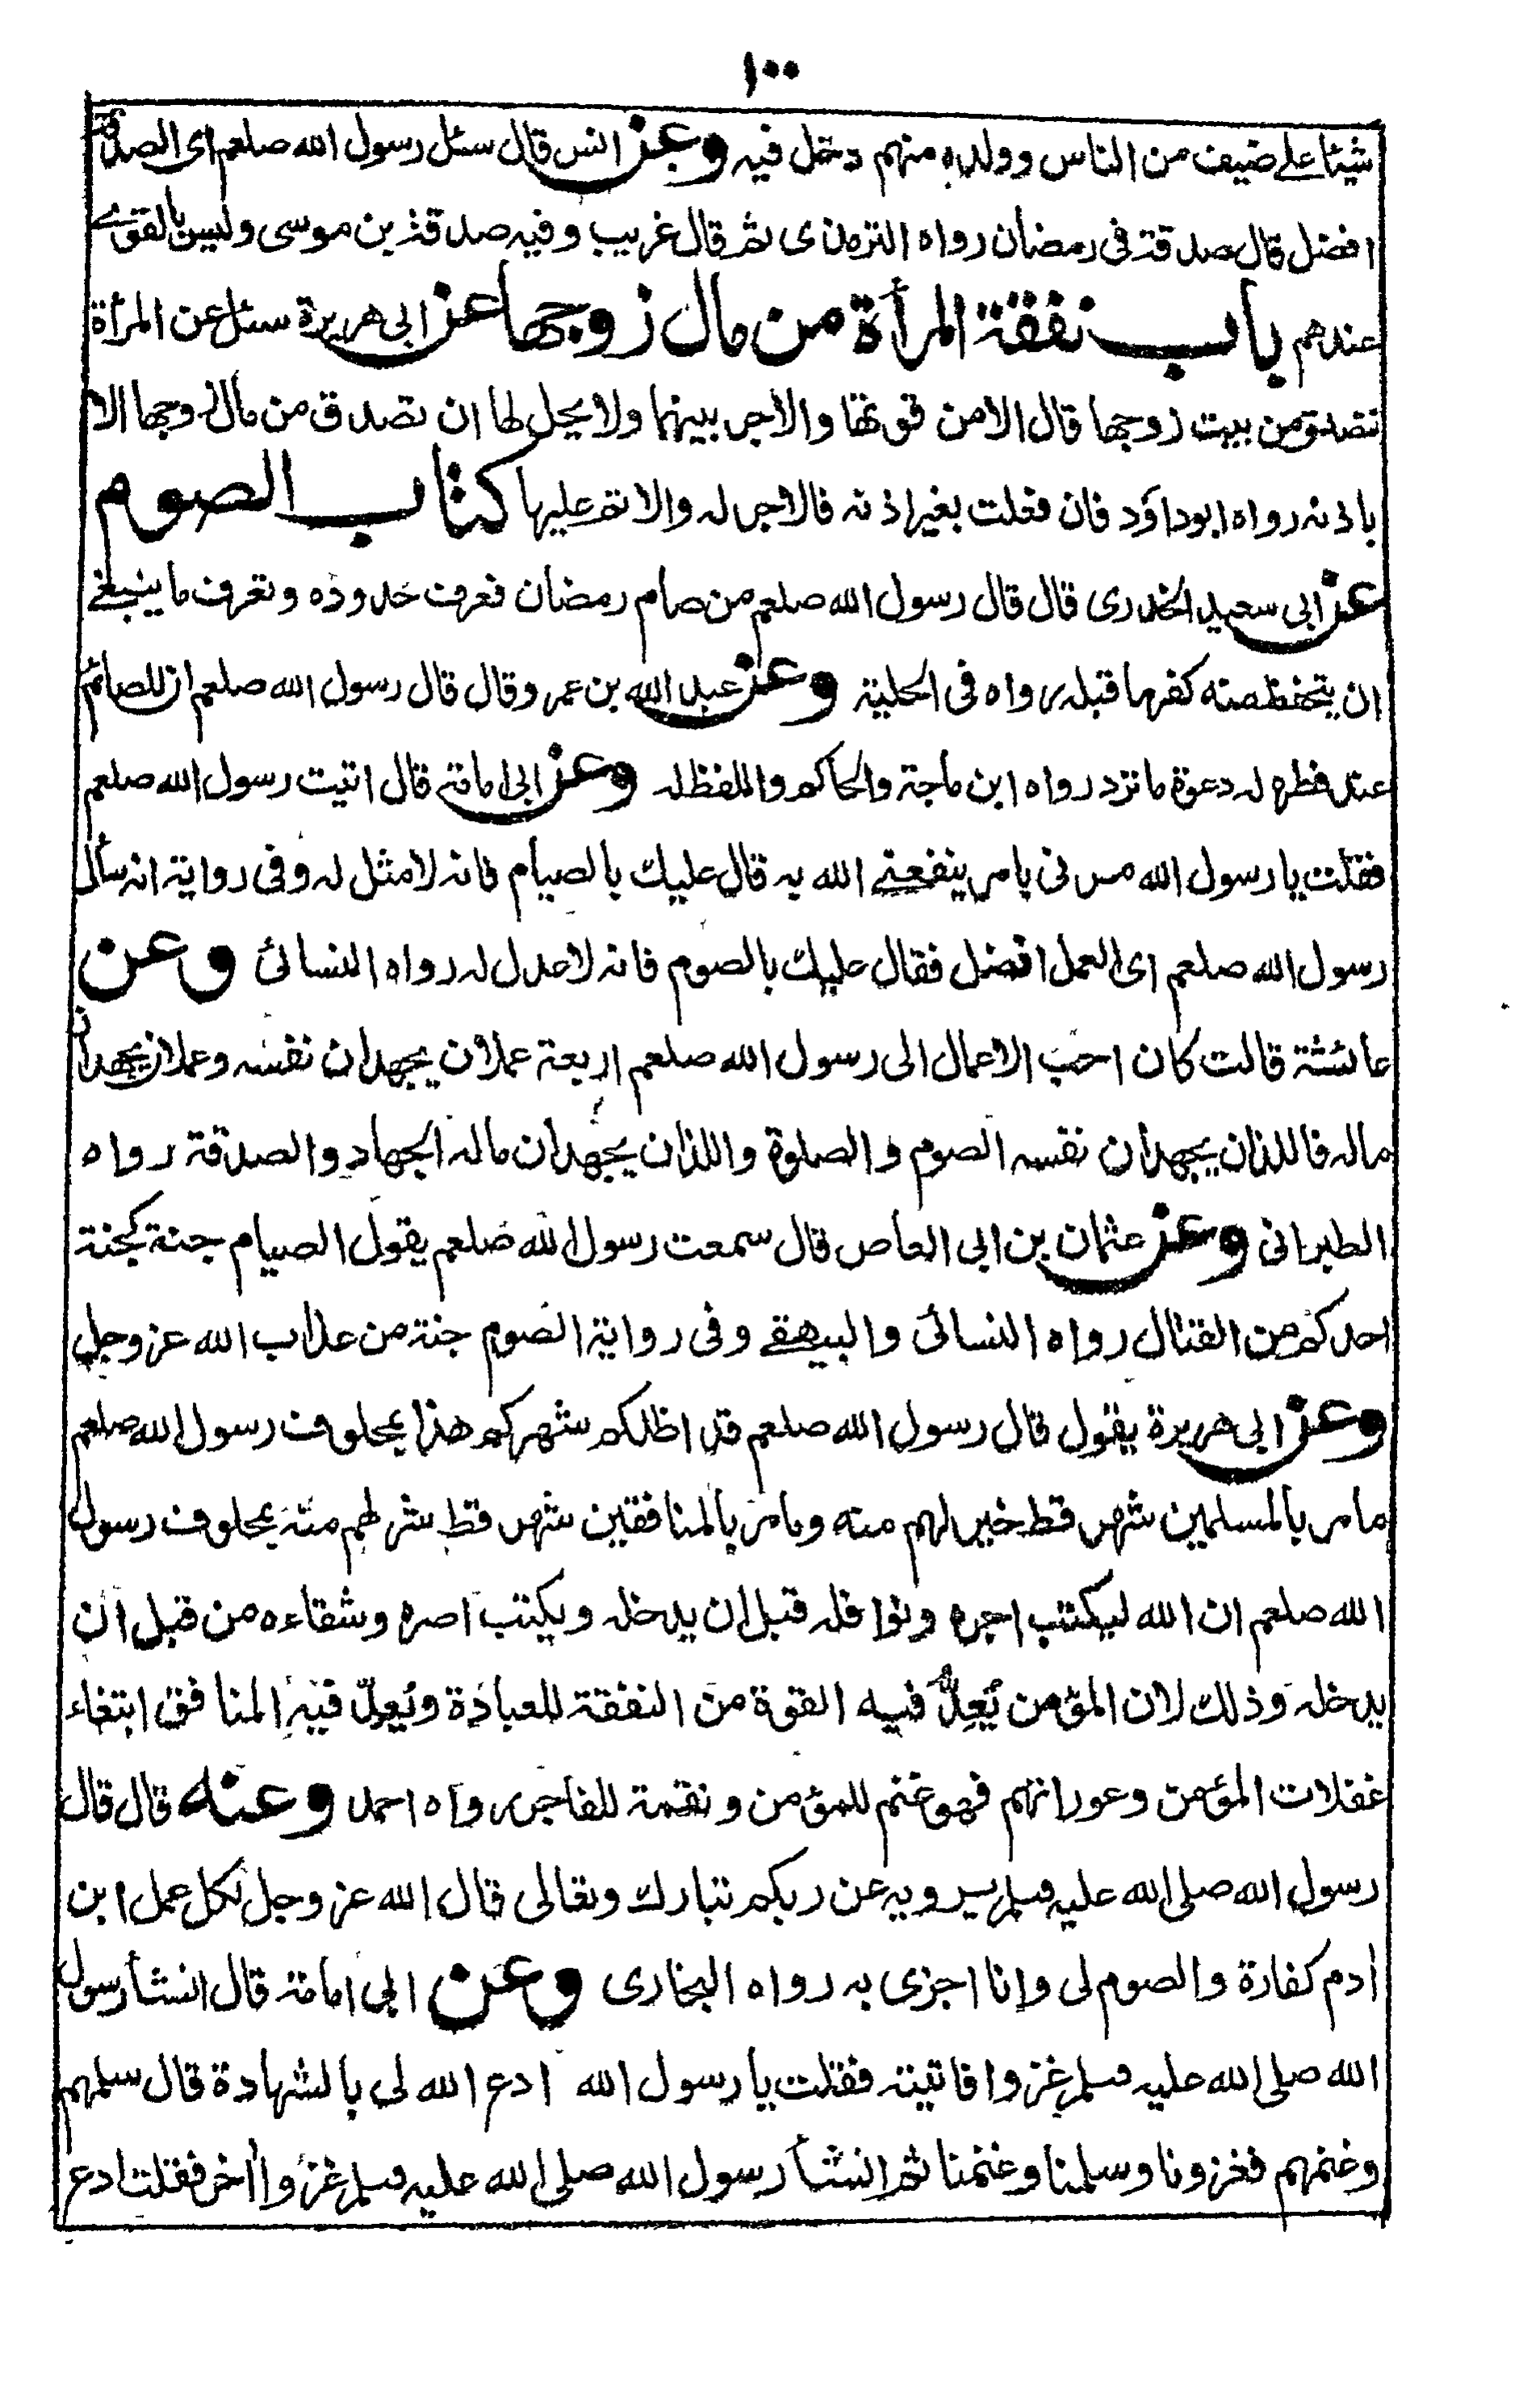 ١٠٠
شيئا على ضيف من الناس وولده منهم دخل فيه وعن انس قال سئل رسول الله صلعم اى الصدقة
افضل قال صدقة فى رمضان رواه الترمذى ثم قال غريب وفيه صدقة بن موسى وليس بالقوے
عندهم باب نفقة المرأة من مال زوجها عن ابى هريرة سئل عن المرأة
تصدق من بيت زوجها قال الا من قوتها والاجر بينهما ولا يحل لها ان تصدق من مال زوجها الا
باذنه رواه ابوداؤد فان فعلت بغير اذنه فالاجر له والاثم عليها كتاب الصوم
عن ابى سعيد الخدرى قال قال رسول الله صلعم من صام رمضان فعرف حدوده وتعرف ما ينبغے
ان يتحفظ منه كفرها قبله رواه فى الحلية وعن عبد الله بن عمرو قال قال رسول الله صلعم ان للصائم
عند فطره له دعوة ما ترد رواه ابن ماجة والحاكم واللفظ له وعن ابى امامة قال اتيت رسول الله صلعم
فقلت يا رسول الله مرنى بامر ينفعنے الله به قال عليك بالصيام فانه لا مثل له وفى رواية انه سأل
رسول الله صلعم اى العمل افضل فقال عليك بالصوم فانه لا عدل له رواه النسائى وعن
عائشة قالت كان احب الاعمال الى رسول الله صلعم اربعة عملان يجهدان نفسه وعملان يجهدان
ماله فاللذان يجهدان نفسه الصوم والصلوة واللذان يجهدان ماله الجهاد والصدقة رواه
الطبرانى وعن عثمان بن ابى العاص قال سمعت رسول الله صلعم يقول الصيام جنة كجنة
احدكم من القتال رواه النسائى والبيهقے وفى رواية الصوم جنة من عذاب الله عز وجل
وعن ابى هريرة يقول قال رسول الله صلعم قد اظلكم شهركم هذا بمحلوف رسول الله صلعم
ما مر بالمسلمين شهر قط خير لهم منه وما مر بالمنافقين شهر قط شر لهم منه بمحلوف رسول
الله صلعم ان الله ليكتب اجره ونوافله قبل ان يدخله ويكتب اصره وشقاءه من قبل ان
يدخله وذلك لان المؤمن يُعِدُّ فيه القوة من النفقة للعبادة ويُعِدّ فيه المنافق ابتغاء
غفلات المؤمن وعوراتهم فهو غنم للمؤمن ونقمة للفاجر رواه احمد وعنه قال قال
رسول الله صلى الله عليه وسلم يرويه عن ربكم تبارك وتعالى قال الله عز وجل لكل عمل ابن
ادم كفارة والصوم لى وانا اجزى به رواه البخارى وعن ابى امامة قال انشأ رسول
الله صلى الله عليه وسلم غزوا فاتيته فقلت يا رسول الله ادع الله لى بالشهادة قال سلمهم
وغنمهم فغزونا وسلمنا وغنمنا ثم انشأ رسول الله صلى الله عليه وسلم غزوا اخر فقلت ادع